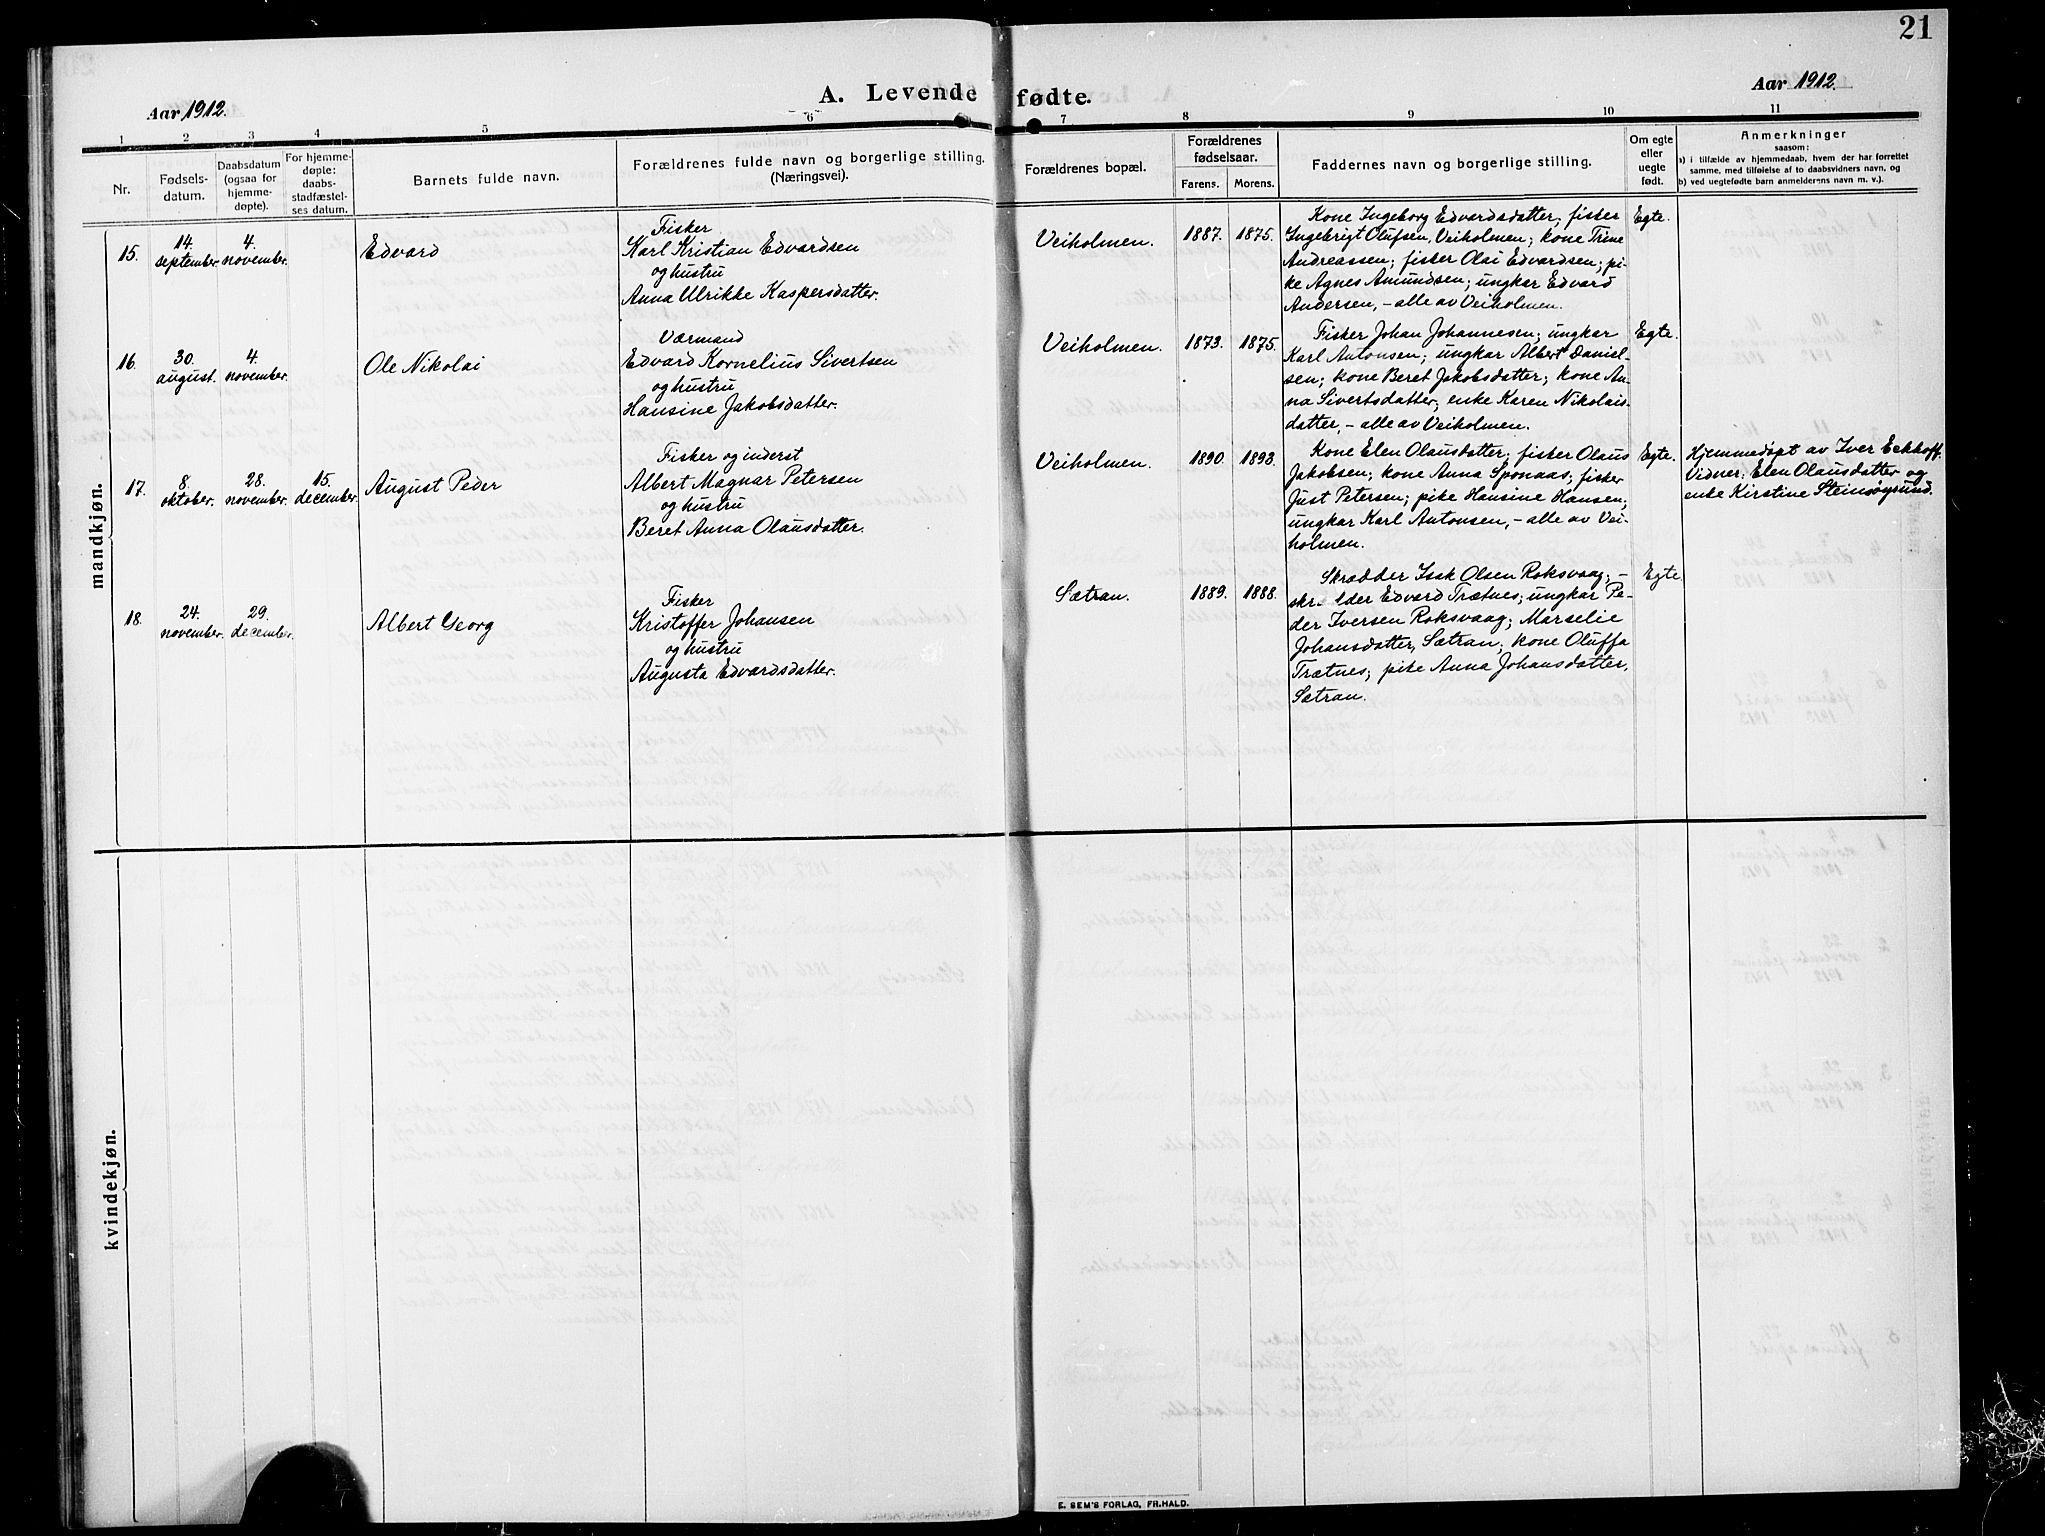 21
Aar 1912.
A. Levende fødte.
Aar 1912.
1 2 3 4 5 6 7 8 9 10 11
Nr.
Fødsels-
datum.
Daabsdatum
(ogsaa for
hjemme-
døpte).
For hjemme-
døpte:
daabs-
stadfæstel-
ses datum.
Barnets fulde navn.
Forældrenes fulde navn og borgerlige stilling.
(Næringsvei).
Forældrenes bopæl.
Forældrenes
fødselsaar.
Farens. Morens.
Faddernes navn og borgerlige stilling.
Om egte
eller
uegte
født.
Anmerkninger
saasom:
a) i tilfælde av hjemmedaab, hvem der har forrettet
samme, med tilføielse af to daabsvidners navn, og
b) ved uegtefødte barn anmelderens navn m. v.).
mandkjøn.
15.
14.
september.
4.
november.
Edvard
Fisker
Karl Kristian Edvardsen
og hustru
Anna Ulrikke Kaspersdatter.
Veiholmen.
1887. 1875.
Kone Ingeborg Edvardsdatter; fisker
Ingebrigt Olufsen, Veiholmen; kone Trine
Andreassen; fisker Olai Edvardsen; pi-
ke Agnes Amundsen; ungkar Edvard
Andersen, - alle av Veiholmen.
Egte.
16.
30.
august.
4.
november.
Ole Nikolai
Værmand
Edvard Kornelius Sivertsen
og hustru
Hansine Jakobsdatter.
Veiholmen.
1873. 1875.
Fisker Johan Johannesen; ungkar
Karl Antonsen; ungkar Albert Daniel-
sen; kone Beret Jakobsdatter; kone An-
na Sivertsdatter; enke Karen Nikolais-
datter, - alle av Veiholmen.
Egte.
17.
8.
oktober.
28.
november.
15.
december.
August Peder
Fisker og inderst
Albert Magnar Petersen
og hustru
Beret Anna Olausdatter.
Veiholmen.
1890. 1893.
Kone Elen Olausdatter; fisker Olaus
Jakobsen; kone Anna Sponaas; fisker
Just Petersen; pike Hansine Hansen;
ungkar Karl Antonsen, - alle av Vei-
holmen.
Egte.
Hjemmedøpt av Iver Eckhoff.
Vidner: Elen Olausdatter og
enke Kirstine Steinsøysund.
18.
24.
november.
29.
december.
Albert Georg
Fisker
Kristoffer Johansen
og hustru
Augusta Edvardsdatter.
Sætran.
1889. 1888.
Skrædder Isak Olsen Roksvaag; -
Edvard Trætnes; ungkar Pe-
der Iversen Roksvaag; Marselie
Johansdatter, Sætran; kone Oluffa
Trætnes; pike Anna Johansdatter,
Sætran.
Egte
kvindekjøn.
E. SEM'S FORLAG, FR.HALD.